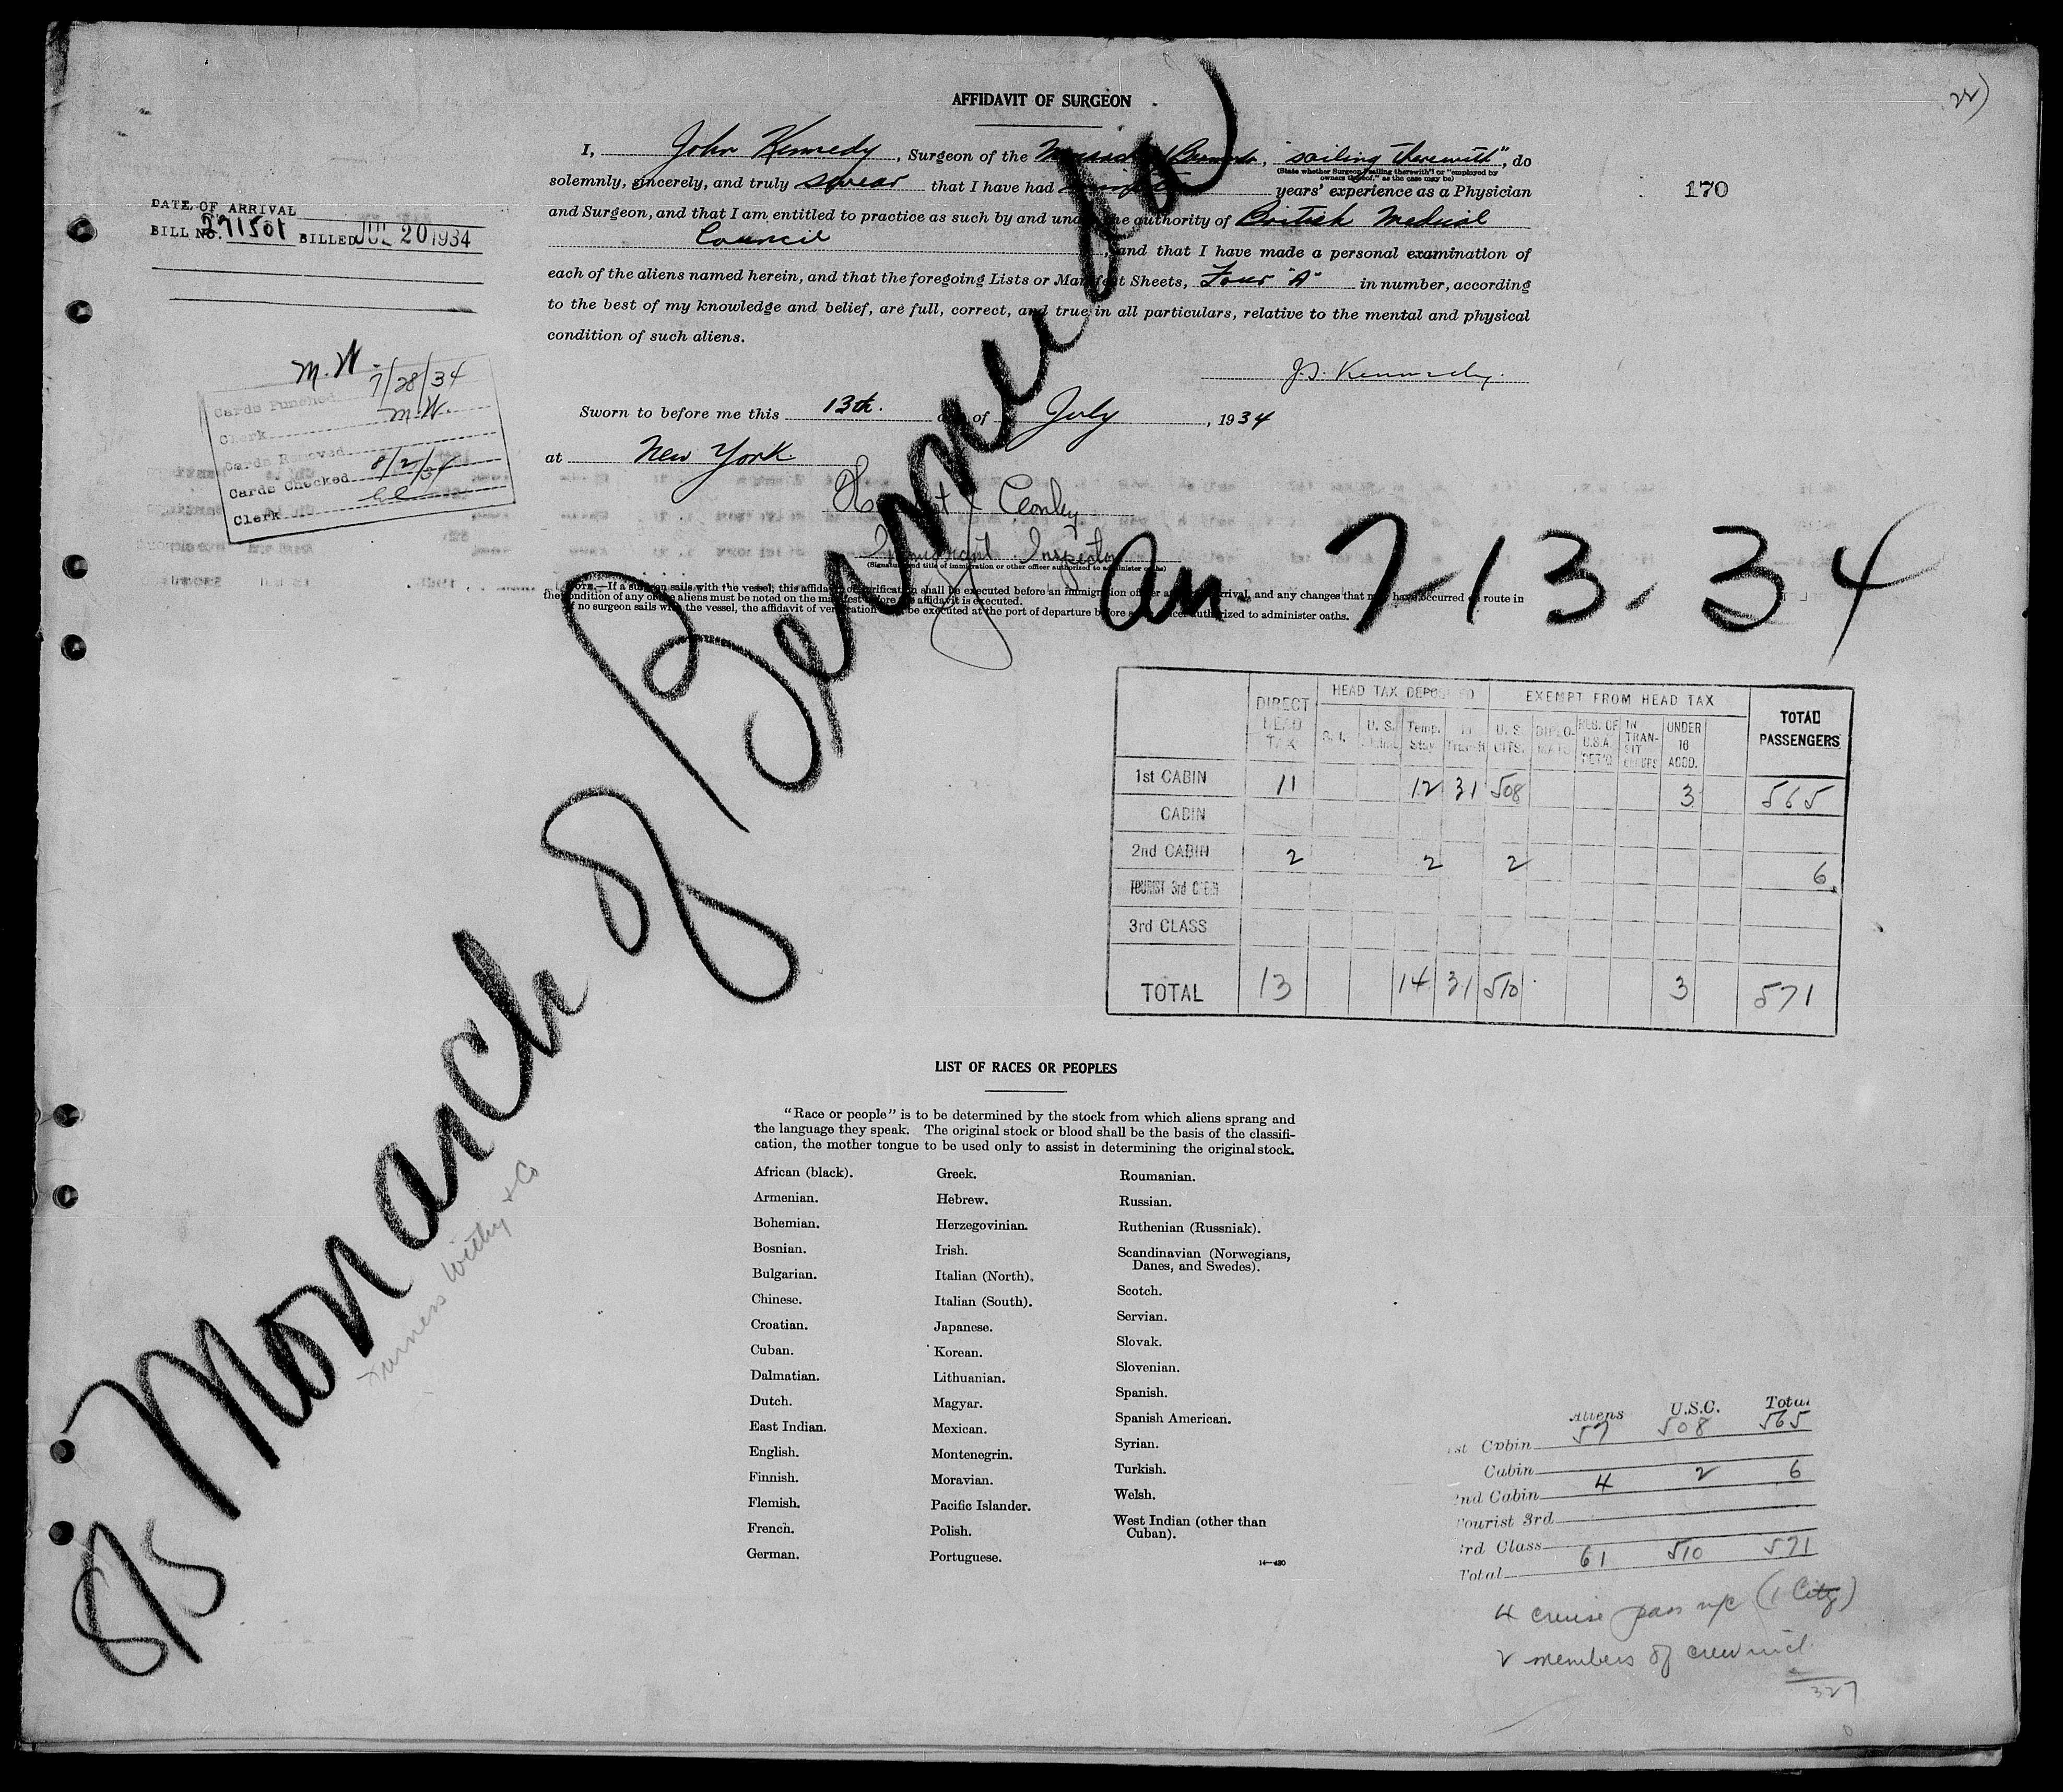 AFFIDAVIT OF SURGEON
22)
170
I, John Kennedy, Surgeon of the Monarch of Bermuda, "sailing therewith", do
(State whether Surgeon "sailing therewith" or "employed by
owners thereof," as the case may be)
solemnly, sincerely, and truly swear that I have had years' experience as a Physician
and Surgeon, and that I am entitled to practice as such by and under the authority of British Medical
Council, and that I have made a personal examination of
each of the aliens named herein, and that the foregoing Lists or Manifest Sheets, Four "A" in number, according
to the best of my knowledge and belief, are full, correct, and true in all particulars, relative to the mental and physical
condition of such aliens.
J.S. Kennedy.
Sworn to before me this 13th. day of July, 1934
at New York.
Conley
Immigrant Inspector
(Signature and title of immigration or other officer authorized to administer oaths)
NOTE.—If a surgeon sails with the vessel, this affidavit of verification shall be executed before an immigration officer at arrival, and any changes that may have occurred en route in
the condition of any of the aliens must be noted on the manifest before the affidavit is executed.
If no surgeon sails with the vessel, the affidavit of verification be executed at the port of departure before an officer authorized to administer oaths.
DATE OF ARRIVAL
BILL NO. 271501 BILLED JUL 20 1934
M.W.
Cards Punched 7/28/34
Clerk M.W.
Cards Removed
Cards Checked 8/2/34
Clerk
S/S Monarch of Bermuda
Furness Withy & Co
Arr. 7-13-34
DIRECT HEAD TAX
HEAD TAX DEPOSITED
EXEMPT FROM HEAD TAX
TOTAL PASSENGERS
S. I. U. S. Temp. Stay In Trans. U. S. CITS. DIPLOMATS RES. OF U.S.A. RET'G IN TRANSIT UNDER 16 ACCD.
1st CABIN 11 12 31 508 3 565
CABIN
2nd CABIN 2 2 2 6
TOURIST 3rd CABIN
3rd CLASS
TOTAL 13 14 31 510 3 571
LIST OF RACES OR PEOPLES
"Race or people" is to be determined by the stock from which aliens sprang and
the language they speak. The original stock or blood shall be the basis of the classifi-
cation, the mother tongue to be used only to assist in determining the original stock.
African (black).
Armenian.
Bohemian.
Bosnian.
Bulgarian.
Chinese.
Croatian.
Cuban.
Dalmatian.
Dutch.
East Indian.
English.
Finnish.
Flemish.
French.
German.
Greek.
Hebrew.
Herzegovinian.
Irish.
Italian (North).
Italian (South).
Japanese.
Korean.
Lithuanian.
Magyar.
Mexican.
Montenegrin.
Moravian.
Pacific Islander.
Polish.
Portuguese.
Roumanian.
Russian.
Ruthenian (Russniak).
Scandinavian (Norwegians,
Danes, and Swedes).
Scotch.
Servian.
Slovak.
Slovenian.
Spanish.
Spanish American.
Syrian.
Turkish.
Welsh.
West Indian (other than
Cuban).
14—430
Aliens U.S.C. Total
1st Cabin 57 508 565
Cabin
2nd Cabin 4 2 6
Tourist 3rd
3rd Class
Total 61 510 571
4 cruise pass n/c (1 City)
2 members of crew incl.
327